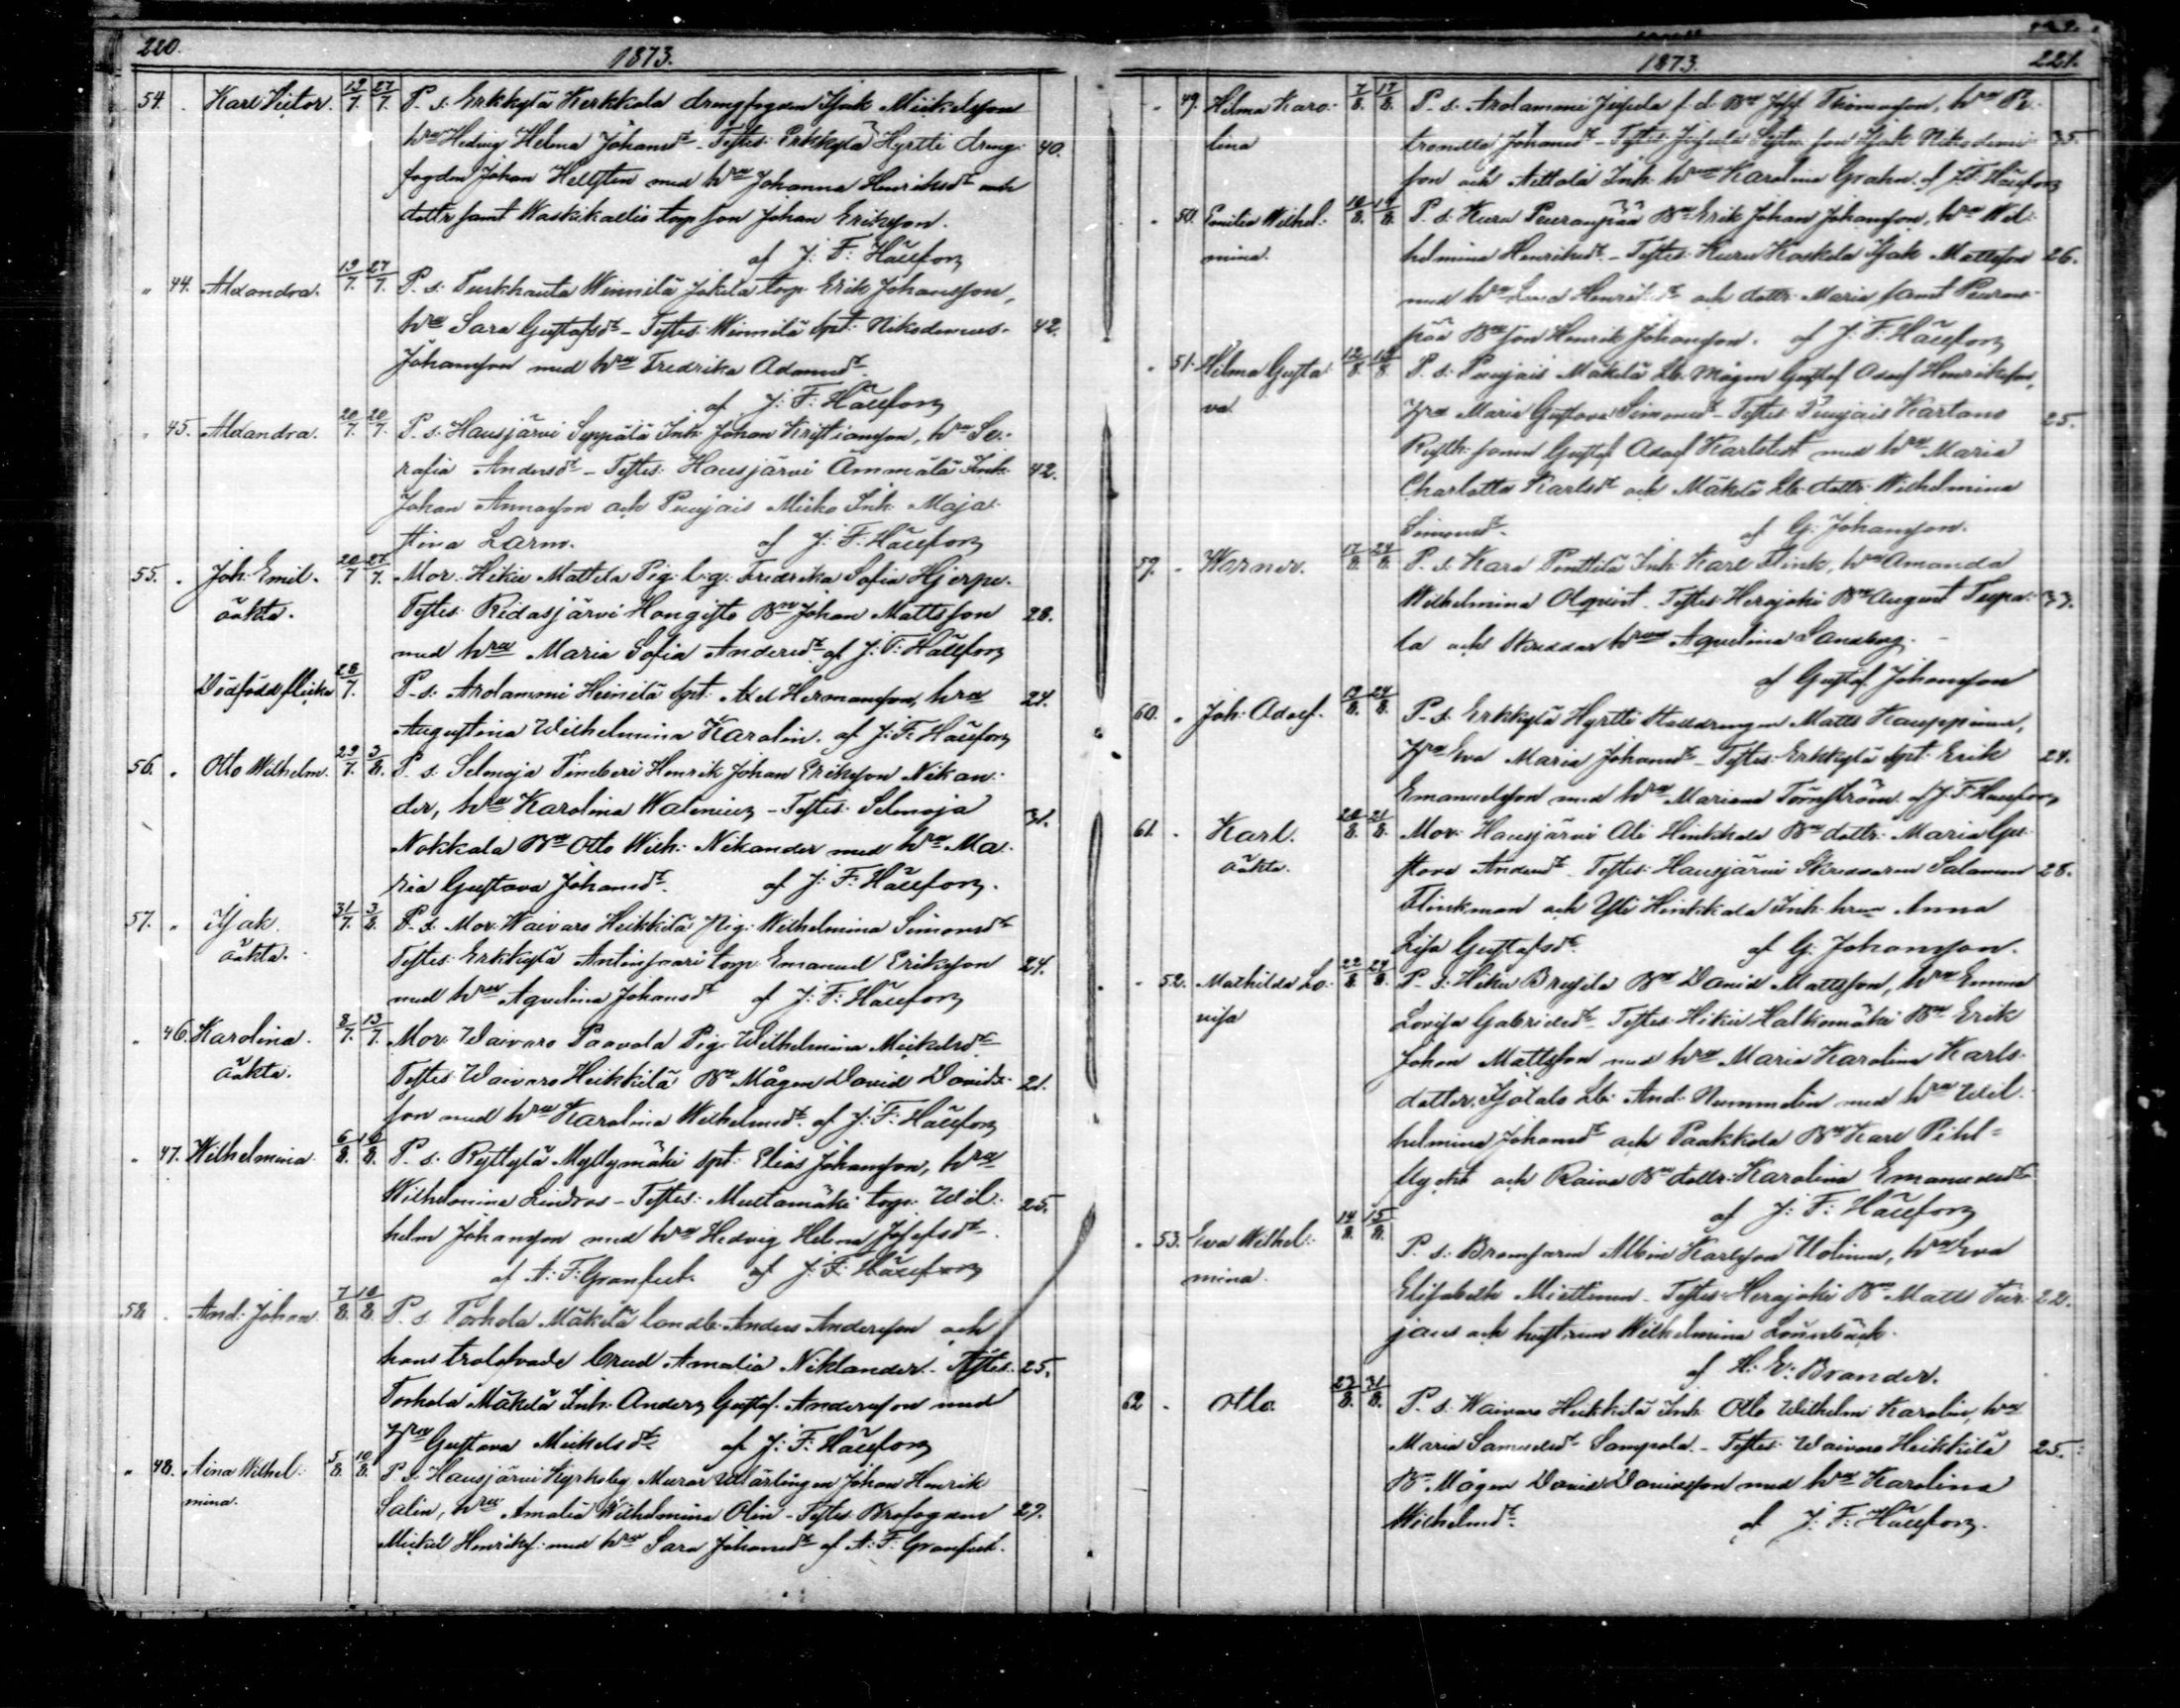 220.
1873.
54. Karl Victor. 19/7. 27/7. P. s: Erkkylä Kerkkola drengfogden Isak Mickelsson
hru Hedvig Helena Johansdr - Testes: Erkkylä Hyrtti dreng- 40.
fogden Johan Hellsten med hru Johanna Henriksdr och
dottr samt Waskikallio torp. son Johan Eriksson.
af J: F: Hällfors
" 44. Alexandra. 19/7. 27/7. P. s: Turkhauta Winnilä Jokela torp. Erik Johansson,
hru Sara Gustafsdr - Testes: Winnilä spt: Nikodemus 42.
Johansson med hru Fredrika Adamsdr.
af J: F: Hällfors
" 45. Alexandra. 20/7. 20/7. P. s: Hausjärvi Seppälä Inh: Johan Kristiansson, hru Se-
rafia Andersdr - Testes: Hausjärvi Ämmälä Inh: 42.
Johan Annasson och Puujais Micko Inh: Maja
Stina Larm. af J: F: Hällfors
55. " Joh: Emil. 20/7 27/7. Mor: Hikiä Mattila Pig: l: g: Fredrika Sofia Hjerpe.
oäkta. Testes: Ridasjärvi Hongisto Bn Johan Mattsson 28.
med hru Maria Sofia Andersdr af J: F: Hällfors
Dödfödd flicka 28/7. P. s: Arolammi Heinilä spt: Axel Hermansson, hru 24.
Augustina Wilhelmina Karolin. af J: F: Hällfors
56. " Otto Wilhelm. 29/7. 3/8. P. s: Selänoja Timberi Henrik Johan Eriksson Nikan-
der, hru Karolina Walenius - Testes: Selänoja 31.
Nokkala Bn Otto Wilh: Nikander med hru Ma-
ria Gustava Johansdr. af J: F: Hällfors.
57. " Isak 31/7. 3/8. P. s. Mor: Waivaro Heikkilä Pig: Wilhelmina Simonsdr
oäkta. Testes: Erkkylä Antinsaari torp: Emanuel Eriksson 24.
med hru Aqvelina Johansdr af J: F: Hällfors
" 46. Karolina. 8/7. 13/7. Mor: Waivaro Paavola Pig: Wilhelmina Mickelsdr
oäkta. Testes Waivaro Heikkilä Bn Mågen David Davids- 21.
son med hru Karolina Wilhelmsdr. af J: F: Hällfors
" 47. Wilhelmina. 6/8. 10/8. P. s: Ryttylä Myllymäki spt: Elias Johansson, hru
Wilhelmina Lindros - Testes: Multamäki torp: Wil- 25.
helm Johansson med hru Hedvig Helena Josefsdr
af A: F: Granfelt. af J: F: Hällfors
58. And: Johan 7/8. 10/8. P. s. Torhola Mäkelä landb: Anders Andersson och
hans trolofvade brud Amalia Niklander - Testes: 25.
Torhola Mäkelä Inh: Anders Gustaf Andersson med
hru Gustava Mickelsdr af J: F: Hällfors
" 48. Aina Wilhel- 5/8. 10/8. P. s: Hausjärvi Kyrkoby Murar Johan Henrik
mina. Salin, hru Amalia Wilhelmina Olin - Testes: Brofogden 29.
Mickel Henrikss: med hru Sara Johansdr af A: F: Granfelt.
1873.
221.
" 49. Hilma Karo- 7/8. 17/8. P. s. Arolammi Jussila f. d. Bn Josef Thomasson, hru Pe-
lina tronella Johansdr - Testes: Jussila son Isak Nikodemi- 35.
son och Aittola Inh: hru Karolina Grahn. af J: F: Hällfors
" 50. Emilia Wilhel- 10/8. 17/8. P. s: Kuru Peuranpää Bn Erik Johan Johansson, hru Wil-
mina. helmina Henriksdr. - Testes: Kuru Koskela Isak Mattsson 26.
med hru Lena Henriksdr och dottr: Maria samt Peuran-
pää Bn son Henrik Johansson. af J: F: Hällfors
" 51. Hilma Gusta- P. s: Puujais Mäkelä Lb: Mågen Gustaf Adolf Henriksson,
va. hru Maria Gustava Simonsdr - Testes: Puujais Kartano 25.
Rusth: sonen Gustaf Adolf Karlstedt med hru Maria
Charlotta Karlsdr och Mäkelä Lb: dottr: Wilhelmina
Simonsdr. af G: Johansson.
59. " Werner. 17/8. 24/8. P. s: Kara Penttilä Inh: Karl Flink, hru Amanda
Wilhelmina Olqvist. Testes: Herajoki Bn August Tupa- 33.
la och Skräddar hru Aqvelina Sandberg. -
af Gustaf Johansson
60. " Joh: Adolf. 19/8. 24/8. P. s. Erkkylä Hyrtti Stalldrengen Matts Kauppinen,
hru Eva Maria Johansdr - Testes: Erkkylä spt: Erik 24.
Emanuelsson med hru Mariana Törnström. af J: F: Hällfors
61. " Karl. Mor: Hausjärvi Ali Hinkkala Bn dottr: Maria Gu-
oäkta. stava Andersdr. Testes: Hausjärvi Skräddaren Salomon 28.
Flinkman och Yli Hinkkala Inh: hru Anna
Lisa Gustafsdr. af G: Johansson.
" 52. Mathilda Lo- 22/8. 24/8. P. s: Hikiä Brusila Bn David Mattsson, hru Emma
visa Lovisa Gabrielsdr Testes: Hikiä Halkomäki Bn Erik
Johan Mattsson med hru Maria Karolina Karls-
dotter, Isotalo Lb: And: Nummelin med hru Wil-
helmina Johansdr och Paakkola Bn Karl Pihl-
och Raiva Bn dottr: Karolina Emanuelsdr
af J: F: Hällfors
" 53. Eva Wilhel- 14/8. 15/8. P. s: Bromsaren Albin Karlsson Uotinen, hru Eva
mina. Elisabeth Miettinen - Testes: Herajoki Bn Matts Tur- 22.
jans och hustrun Wilhelmina Lönnbäck.
af H: W: Brander.
62 " Otto. P. s: Waivaro Heikkilä Inh: Otto Wilhelm Karolin, hru
Maria Samuelsdr Sampola. - Testes: Waivaro Heikkilä 25.
Bn Mågen David Davidsson med hru Karolina
Wilhelmsdr. af J: F: Hällfors.